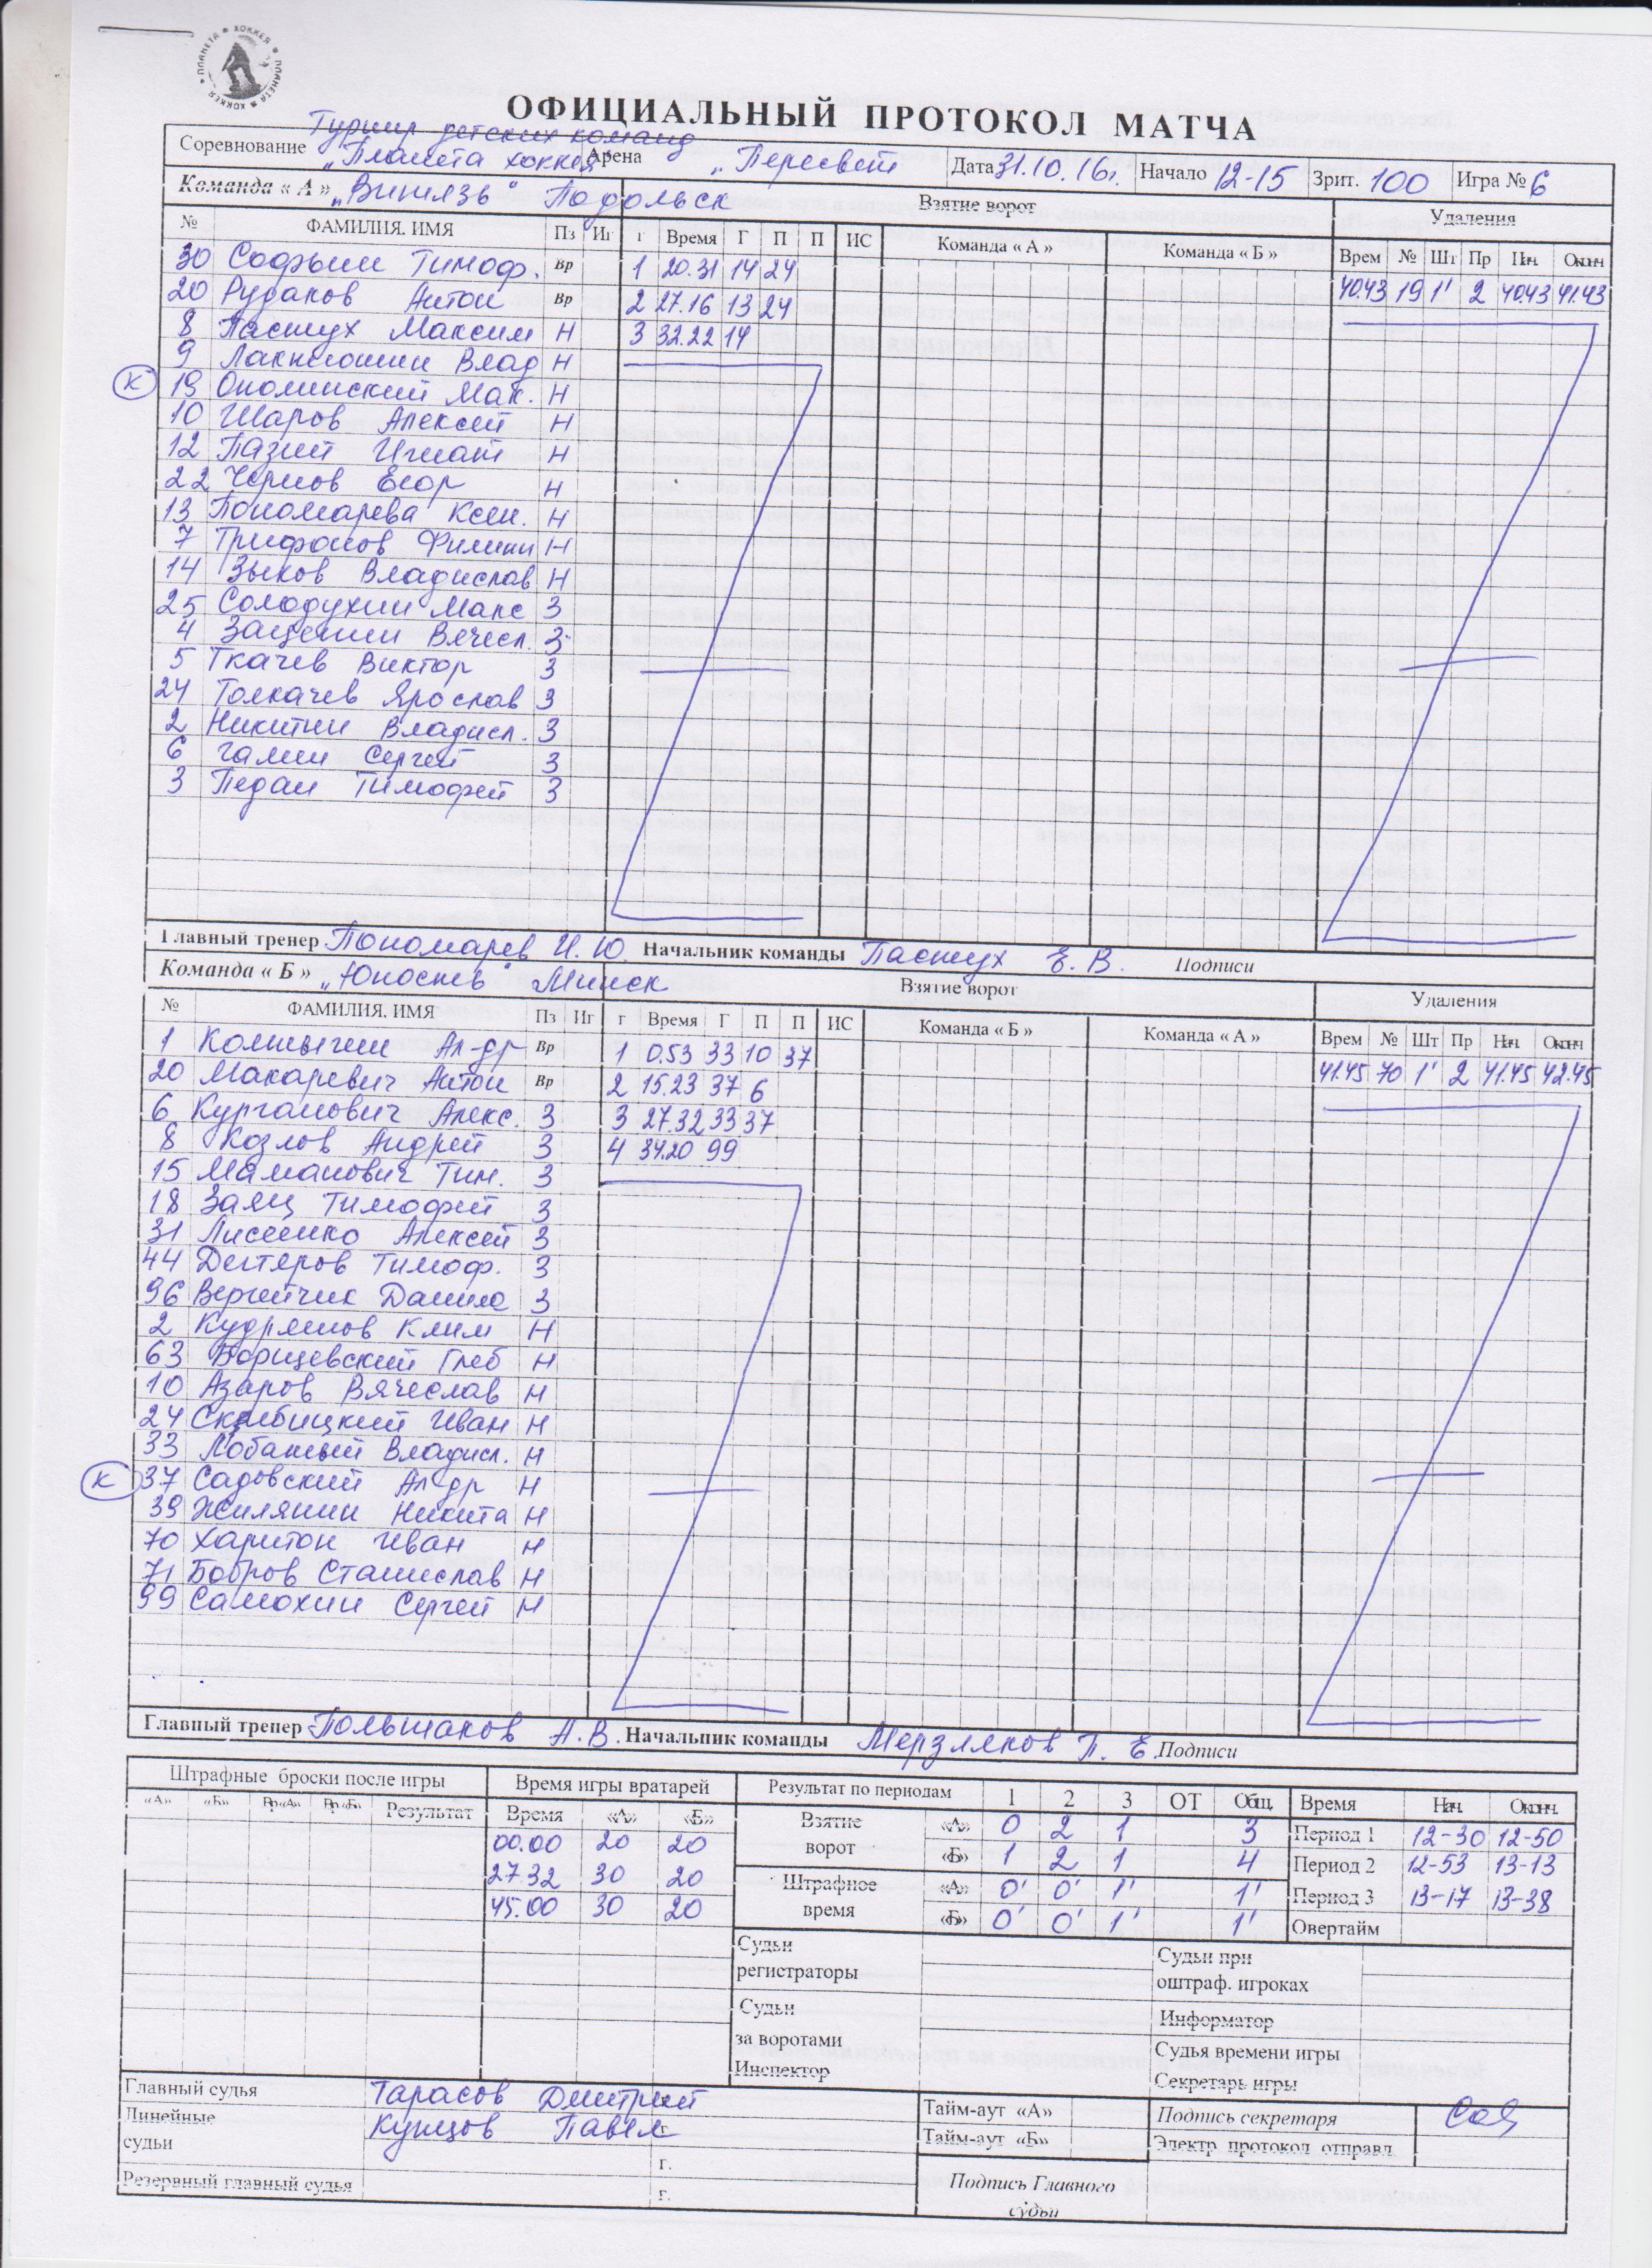 ПЛАНЕТА ★ ХОККЕЯ ★ ПЛАНЕТА ★ ХОККЕЯ ★
ОФИЦИАЛЬНЫЙ ПРОТОКОЛ МАТЧА
Турнир детских команд
Соревнование „Планета хоккея“ Арена „Пересвет Дата 31.10.16г. Начало 12-15 Зрит. 100 Игра № 6
Команда « А » „Витязь“ Подольск Взятие ворот Удаления
№ ФАМИЛИЯ. ИМЯ Пз Иг г Время Г П П ИС Команда « А » Команда « Б » Врем № Шт Пр Нач. Оконч
30 Софьин Тимоф. Вр 1 20.31 14 24 40.43 19 1' 2 40.43 41.43
20 Рудаков Антон Вр 2 27.16 13 24
8 Пастух Максим Н 3 32.22 14
9 Лакнюшин Влад Н
К 19 Ополинский Мак. Н
10 Шаров Алексей Н
12 Пазий Игнат Н
22 Чернов Егор Н
13 Пономарева Ксен. Н
7 Трифонов Филипп Н
14 Зыков Владислав Н
25 Солодухин Макс З
4 Защепин Вячесл. З
5 Ткачев Виктор З
24 Толкачев Ярослав З
2 Никитин Владисл. З
6 Галин Сергей З
3 Педан Тимофей З
Главный тренер Пономарев И.Ю. Начальник команды Пастух Е. В. Подписи
Команда « Б » „Юность“ Минск Взятие ворот Удаления
№ ФАМИЛИЯ. ИМЯ Пз Иг г Время Г П П ИС Команда « Б » Команда « А » Врем № Шт Пр Нач. Оконч
1 Колтыгин Ал-др Вр 1 0.53 33 10 37 41.45 70 1' 2 41.45 42.45
20 Макаревич Антон Вр 2 15.23 37 6
6 Курганович Алекс. З 3 27.32 33 37
8 Козлов Андрей З 4 34.20 99
15 Маманович Тим. З
18 Заяц Тимофей З
31 Лисенко Алексей З
44 Дегтеров Тимоф. З
96 Вергейчик Данила З
2 Кудряшов Клим Н
63 Борщевский Глеб Н
10 Азаров Вячеслав Н
24 Скрибицкий Иван Н
33 Лобатый Владисл. Н
К 37 Садовский Ал-др Н
39 Жилянин Никита Н
70 Харитон Иван Н
71 Бобров Станислав Н
99 Самохин Сергей Н
Главный тренер Польшаков А.В. Начальник команды Мерзляков П. Е. Подписи
Штрафные броски после игры Время игры вратарей Результат по периодам 1 2 3 ОТ Общ. Время Нач. Оконч.
«А» «Б» Вр«А» Вр«Б» Результат Время «А» «Б» Взятие ворот «А» 0 2 1 3 Период 1 12-30 12-50
00.00 20 20 «Б» 1 2 1 4 Период 2 12-53 13-13
27.32 30 20 Штрафное время «А» 0' 0' 1' 1' Период 3 13-17 13-38
45.00 30 20 «Б» 0' 0' 1' 1' Овертайм
Судьи регистраторы Судьи при оштраф. игроках
Судьи за воротами Информатор
Судья времени игры
Инспектор Секретарь игры
Главный судья Тарасов Дмитрий Тайм-аут «А» Подпись секретаря
Линейные судьи Купцов Павел г. Тайм-аут «Б» Электр. протокол отправл.
г.
Резервный главный судья г. Подпись Главного судьи